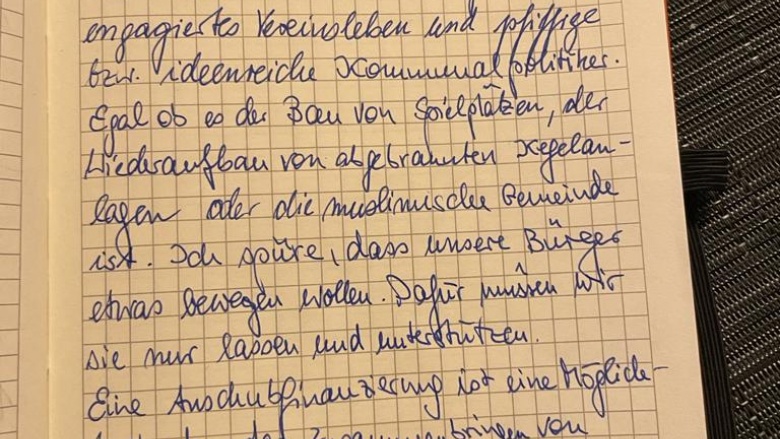 engagiertes Vereinsleben und pfiffige
bzw. ideenreiche Kommunalpolitiker.
Egal ob es der Bau von Spielplätzen, der
Wiederaufbau von abgebrannten Kegelan-
lagen oder die muslimische Gemeinde
ist. Ich spüre, dass unsere Bürger
etwas bewegen wollen. Dafür müssen wir
sie nur lassen und unterstützen.
Eine Anschubfinanzierung ist eine Möglich-
von